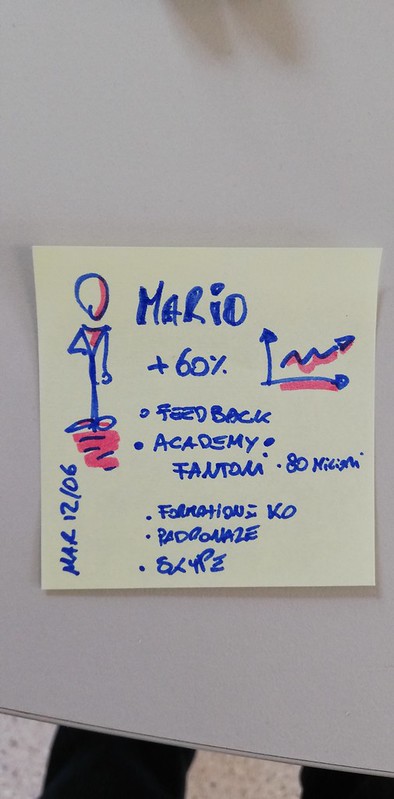 MARIO
+60%
• FEEDBACK
• ACADEMY •
FANTONI • 80 MILIONI
• FORMATIONE KO
• PADRONALE
• SKYPE
MAR 12/06